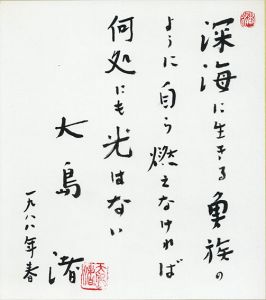 深海に生きる魚族の
ように自ら燃えなければ
何処にも光はない
大島渚
一九八八年春